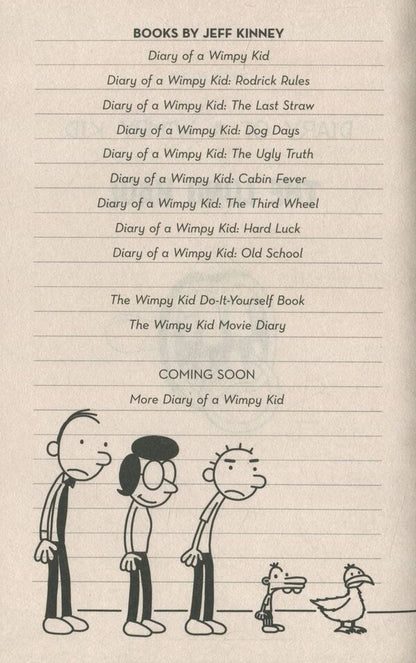 BOOKS BY JEFF KINNEY
Diary of a Wimpy Kid
Diary of a Wimpy Kid: Rodrick Rules
Diary of a Wimpy Kid: The Last Straw
Diary of a Wimpy Kid: Dog Days
Diary of a Wimpy Kid: The Ugly Truth
Diary of a Wimpy Kid: Cabin Fever
Diary of a Wimpy Kid: The Third Wheel
Diary of a Wimpy Kid: Hard Luck
Diary of a Wimpy Kid: Old School
The Wimpy Kid Do-It-Yourself Book
The Wimpy Kid Movie Diary
COMING SOON
More Diary of a Wimpy Kid